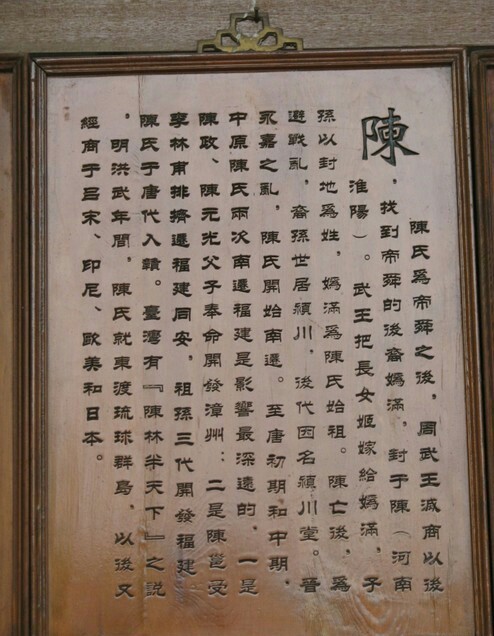 陳
陳氏爲帝舜之後，周武王滅商以後
，找到帝舜的後裔嬀滿，封于陳（河南
淮陽）。武王把長女姬嫁給嬀滿，子
孫以封地爲姓，嬀滿爲陳氏始祖。陳亡後，爲
避戰亂，裔孫世居潁川，後代因名潁川堂。晉
永嘉之亂，陳氏開始南遷。至唐初期和中期，
中原陳氏兩次南遷福建是影響最深遠的，一是
陳政、陳元光父子奉命開發漳州：二是陳邕受
李林甫排擠遷福建同安，祖孫三代開發福建
陳氏于唐代入贛。臺灣有『陳林半天下』之説
，明洪武年間，陳氏就東渡琉球群島，以後又
經商于吕宋、印尼、歐美和日本。